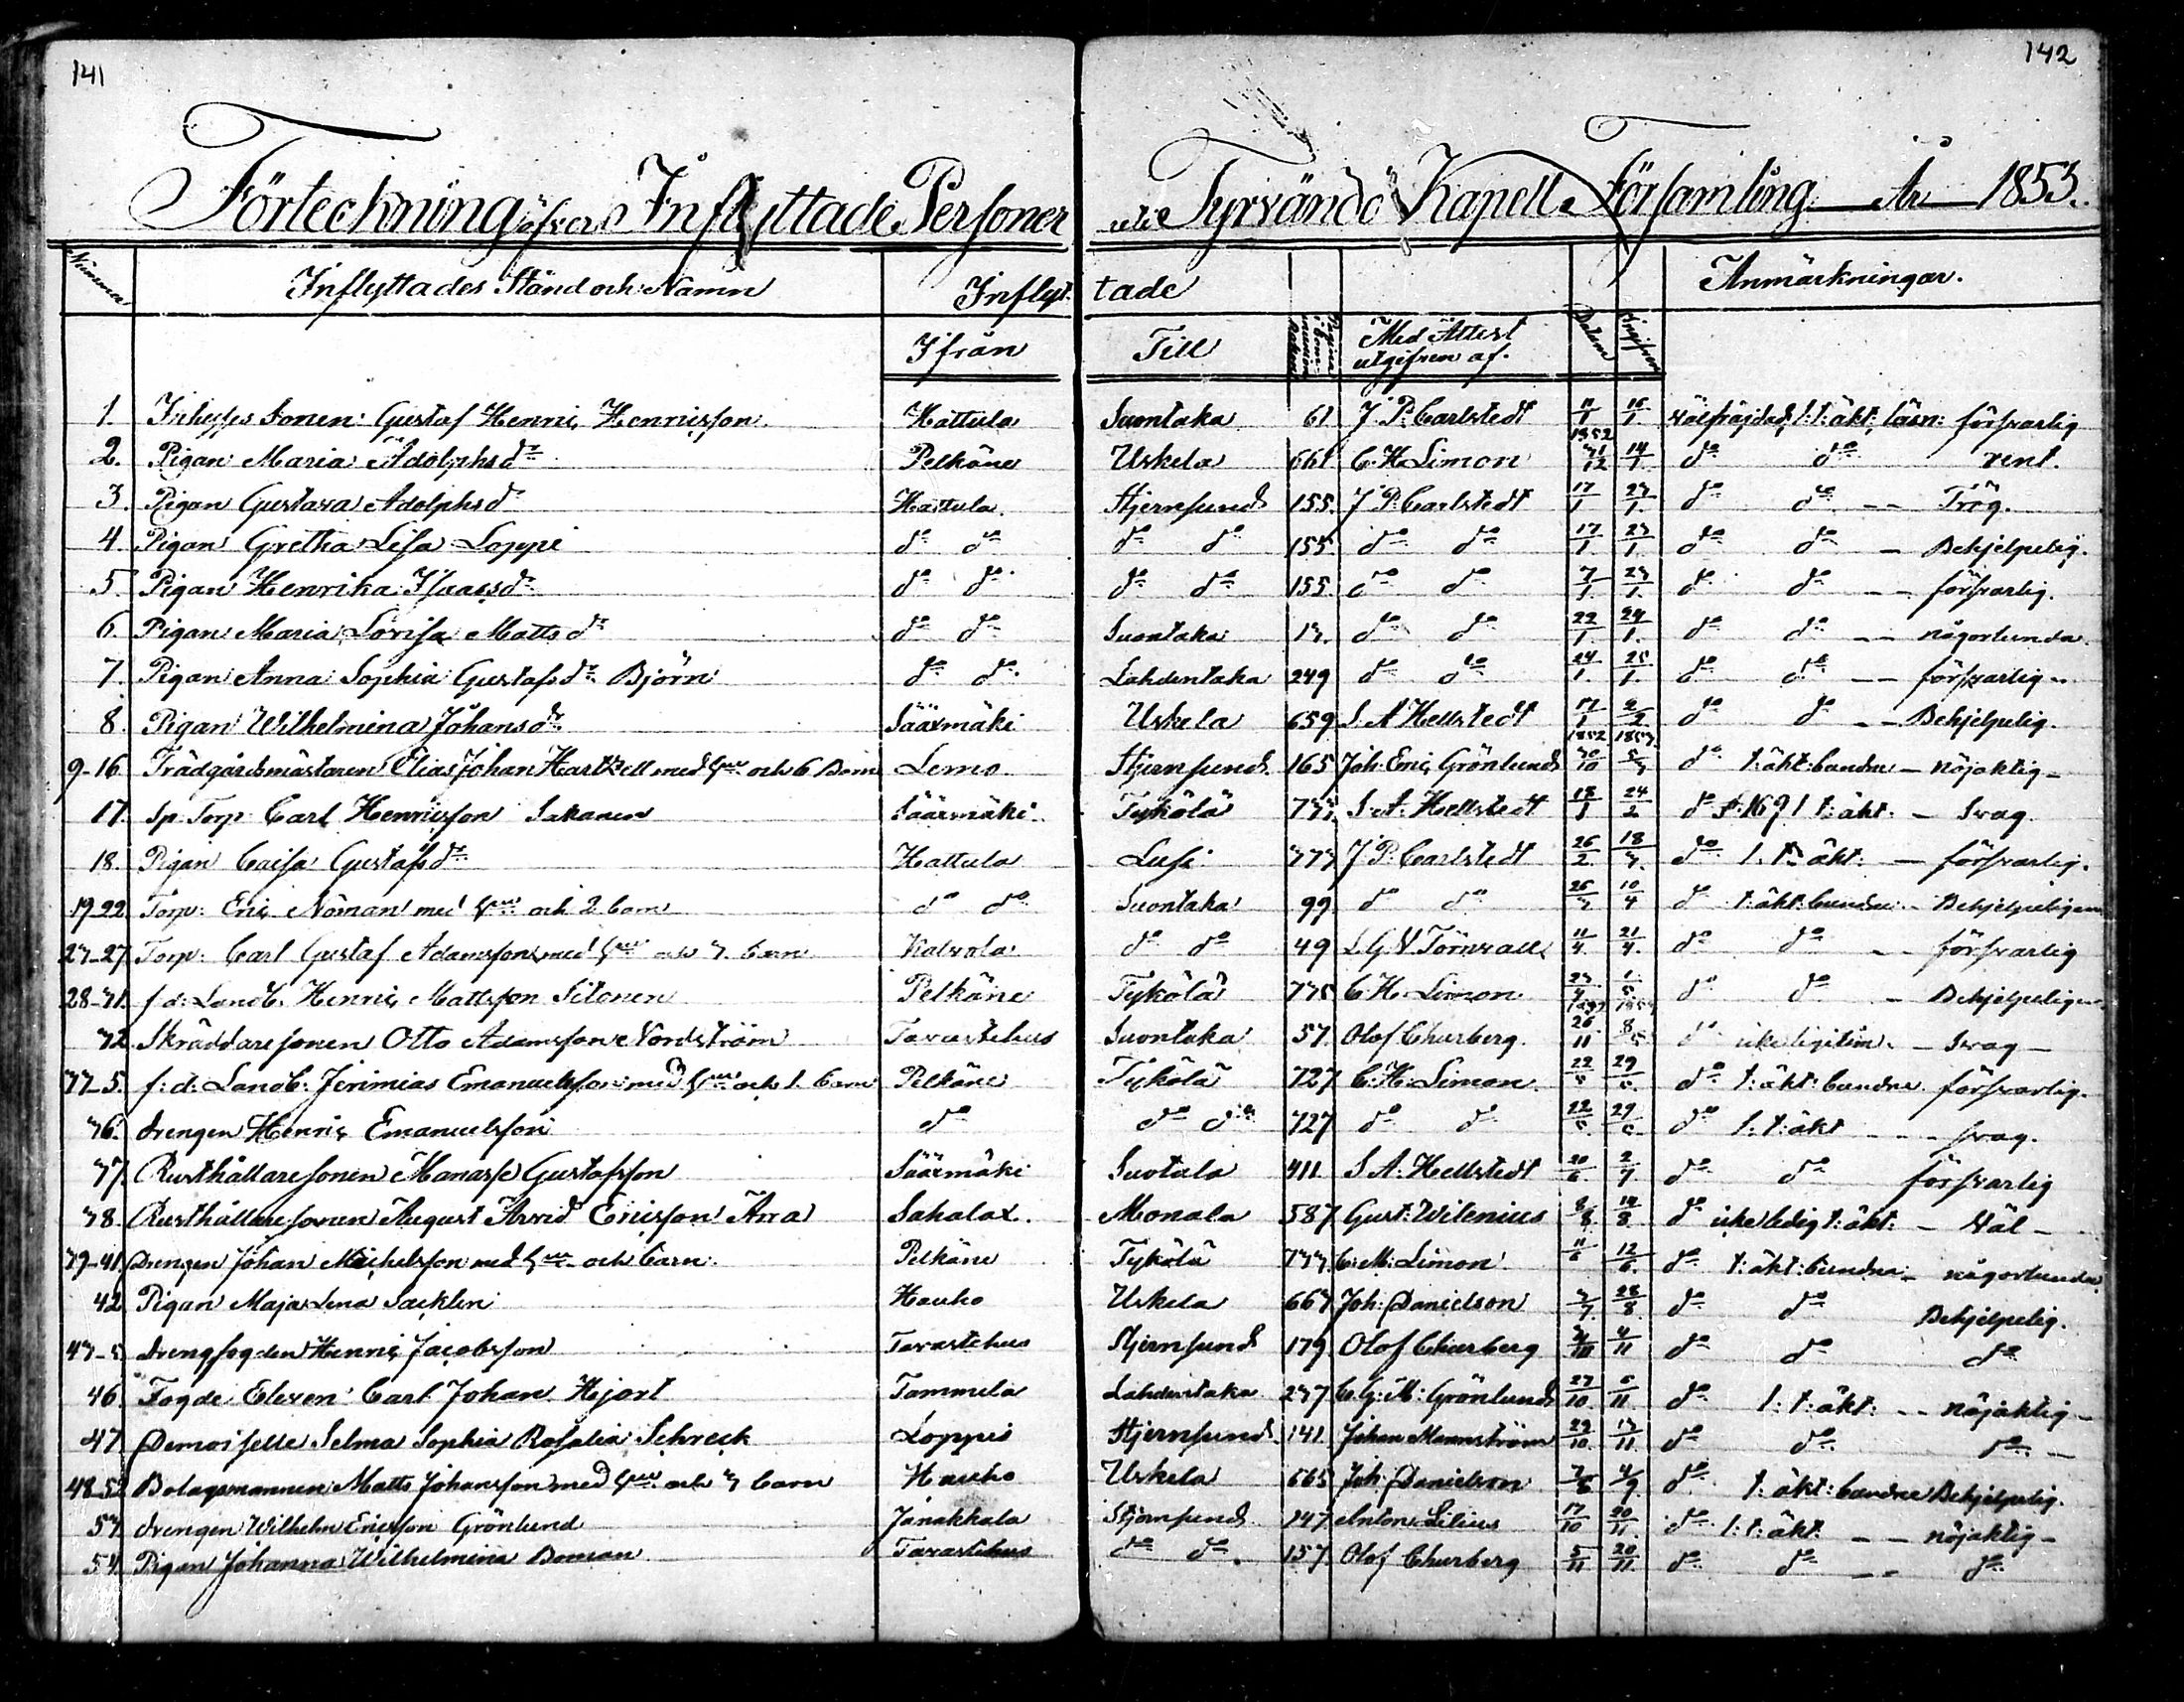 141
142
Förteckning öfver Inflyttade Personer uti Tyrvändö Kapell Församling År 1853.
Nummer Inflyttades Stånd och Namn Inflyt- tade Anmärkningar.
Ifrån Till Med Attest utgifven af. Datum Ingifven
1. Inhyses Sonen: Gustaf Henric Henricsson Hattula Suontaka 61 J. P. Carlstedt 11/1 15/1 välfräjdad, l: t: äkt: läsn: försvarlig
2. Pigan Maria Adolphsdr Pelkäne Uskela 661 C. H. Limon 1852 31/12 14/1 do do rent.
3. Pigan Gustava Adolphsdr Hattula Stjernsund 155 J. P. Carlstedt 17/1 23/1 do do Trög.
4. Pigan Gretha Lisa Loppi do do do do 155 do do 17/1 23/1 do do Behjelpelig.
5. Pigan Henrika Isaacsdr do do do do 155 do do 7/1 23/1 do do försvarlig.
6. Pigan Maria Lovisa Mattsdr do do Suontaka 13 do do 22/1 24/1 do do någorlunda
7. Pigan Anna Sophia Gustafsdr Björn do do Lahdentaka 249 do do 24/1 25/1 do do försvarlig
8. Pigan Wilhelmina Johansdr Säärmäki Uskela 659 S. A. Hellstedt 17/1 2/2 do do Behjelpelig.
9-16 Trädgårdsmästaren Elias Johan Hartzell med hru och 6 Barn Lemo Stjernsund 165 Joh. Eric Grönlund 1852 30/10 1853 5/3 do t: äkt: bundne nöjaktig
17. Sp. Torp: Carl Henricsson Sakanen Säärmäki Tykölä 333 S. A. Hellstedt 18/1 24/2 do l: t: äkt: Svag
18. Pigan Caisa Gustafsdr Hattula Lusi 373 J. P. Carlstedt 26/2 18/3 do l. t. äkt: försvarlig.
19-22 Torp: Eric Nöman med hru och 2 barn do do Suontaka 99 do do 26/3 10/4 do t: äkt: bundne Behjelpeligen
23-27 Torp: Carl Gustaf Adamsson med hru och 3 barn Kalvola do do 49 L. G. V. Törnvall 11/4 21/4 do do försvarlig
28-31. f. d. Landb. Henric Mattsson Sitonen Pelkäne Tykölä 335 C. H. Limon 23/4 1/5 do do Behjelpeligen
32. Skräddaresonen Otto Adamsson Nordström Tavastehus Suontaka 57 Olof Churberg 26/11 8/5 do icke legitim. Svag
33-5. f: d: Landb: Jerimias Emanuelsson med hru och 1. barn Pelkäne Tykölä 327 C. H. Limon 22/5 29/5 do t: äkt: bundne försvarlig.
36. drengen Henric Emanuelsson do do do 327 do do 22/5 29/5 do l: t: äkt svag.
37. Rusthållaresonen Manasse Gustafsson Säärmäki Suotala 411 S. A. Hellstedt 20/6 2/7 do do försvarlig
38. Rusthållaresonen August Arvid Ericsson Arra Sahalax Monala 587 Gust: Wilenius 8/8 14/8 do icke ledig t: äkt: Väl
39-41. Drengen Johan Michelsson med hru och barn: Pelkäne Tykölä 333 C. H. Limon 11/6 12/6 do t: äkt: bundne någorlunda
42. Pigan Maja Lena Sacklin Hauho Uskela 667 Joh: Danielson 3/7 28/8 do do Behjelpelig.
43-5 drengfogden Henric Jacobsson Tavastehus Stjernsund 179 Olof Churberg 31/10 4/11 do do do
46 Fogde Eleven Carl Johan Hjort Tammela Lahdentaka 237 C. G. M. Grönlund 27/10 6/11 do l: t: äkt: nöjaktig
47 Demoiselle Selma Sophia Rosalia Schreck Loppis Stjernsund 141 Johan Mannström 29/10 13/11 do do do
48-52 Bolagsmannen Matts Johansson med hru och 3 barn Hauho Uskela 665 Joh: Danielson 4/9 do t: äkt: bundne Behjelpelig.
53. drengen Wilhelm Ericsson Grönlund Janakkala Stjernsund 147 Anton Lilius 17/10 20/11 do l: t: äkt nöjaktig
54. Pigan Johanna Wilhelmina Boman Tavastehus do do 157 Olof Churberg 5/11 20/11 do do do